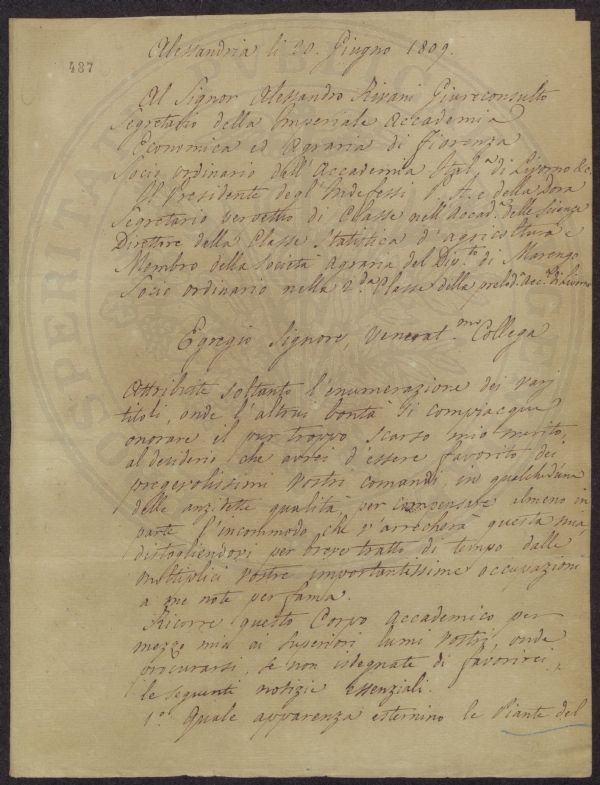 Alessandria li 20. Giugno 1809.
487
Al Signor Alessandro Rivani Giureconsulto
Segretario della Imperiale Accademia
Economica ed Agraria di Fiorenza
Socio ordinario dell'Accademia Ital.ª di Livorno &c.
Il Presidente degl'Indefessi e della Dora
Segretario perpetuo di Classe nell'Accad.ª delle Scienze
Direttore della Classe Statistica d'agricoltura e
Membro della Società Agraria del Dip.to di Marengo
Socio ordinario nella 2.da Classe della prelod.ª Acc.ª di Livorno
Egregio Signore, Venerat.mo Collega
Attribuite soltanto l'enumerazione dei varj
titoli, onde l'altrui bontà si compiacque
onorare il pur troppo scarso mio merito,
al desiderio che avrei d'essere favorito dei
pregevolissimi vostri comandi in qualched'una
delle anzidette qualità, per compensare almeno in
parte l'incommodo che v'arrecherà questa mia,
distogliendovi per breve tratto di tempo dalle
moltiplici vostre importantissime occupazioni
a me note per fama.
Ricorre questo Corpo Accademico per
mezzo mio ai superiori lumi vostri, onde
procurarsi, se non isdegnate di favorirci,
le seguenti notizie essenziali.
1.º Quale apparenza esternino le Piante del